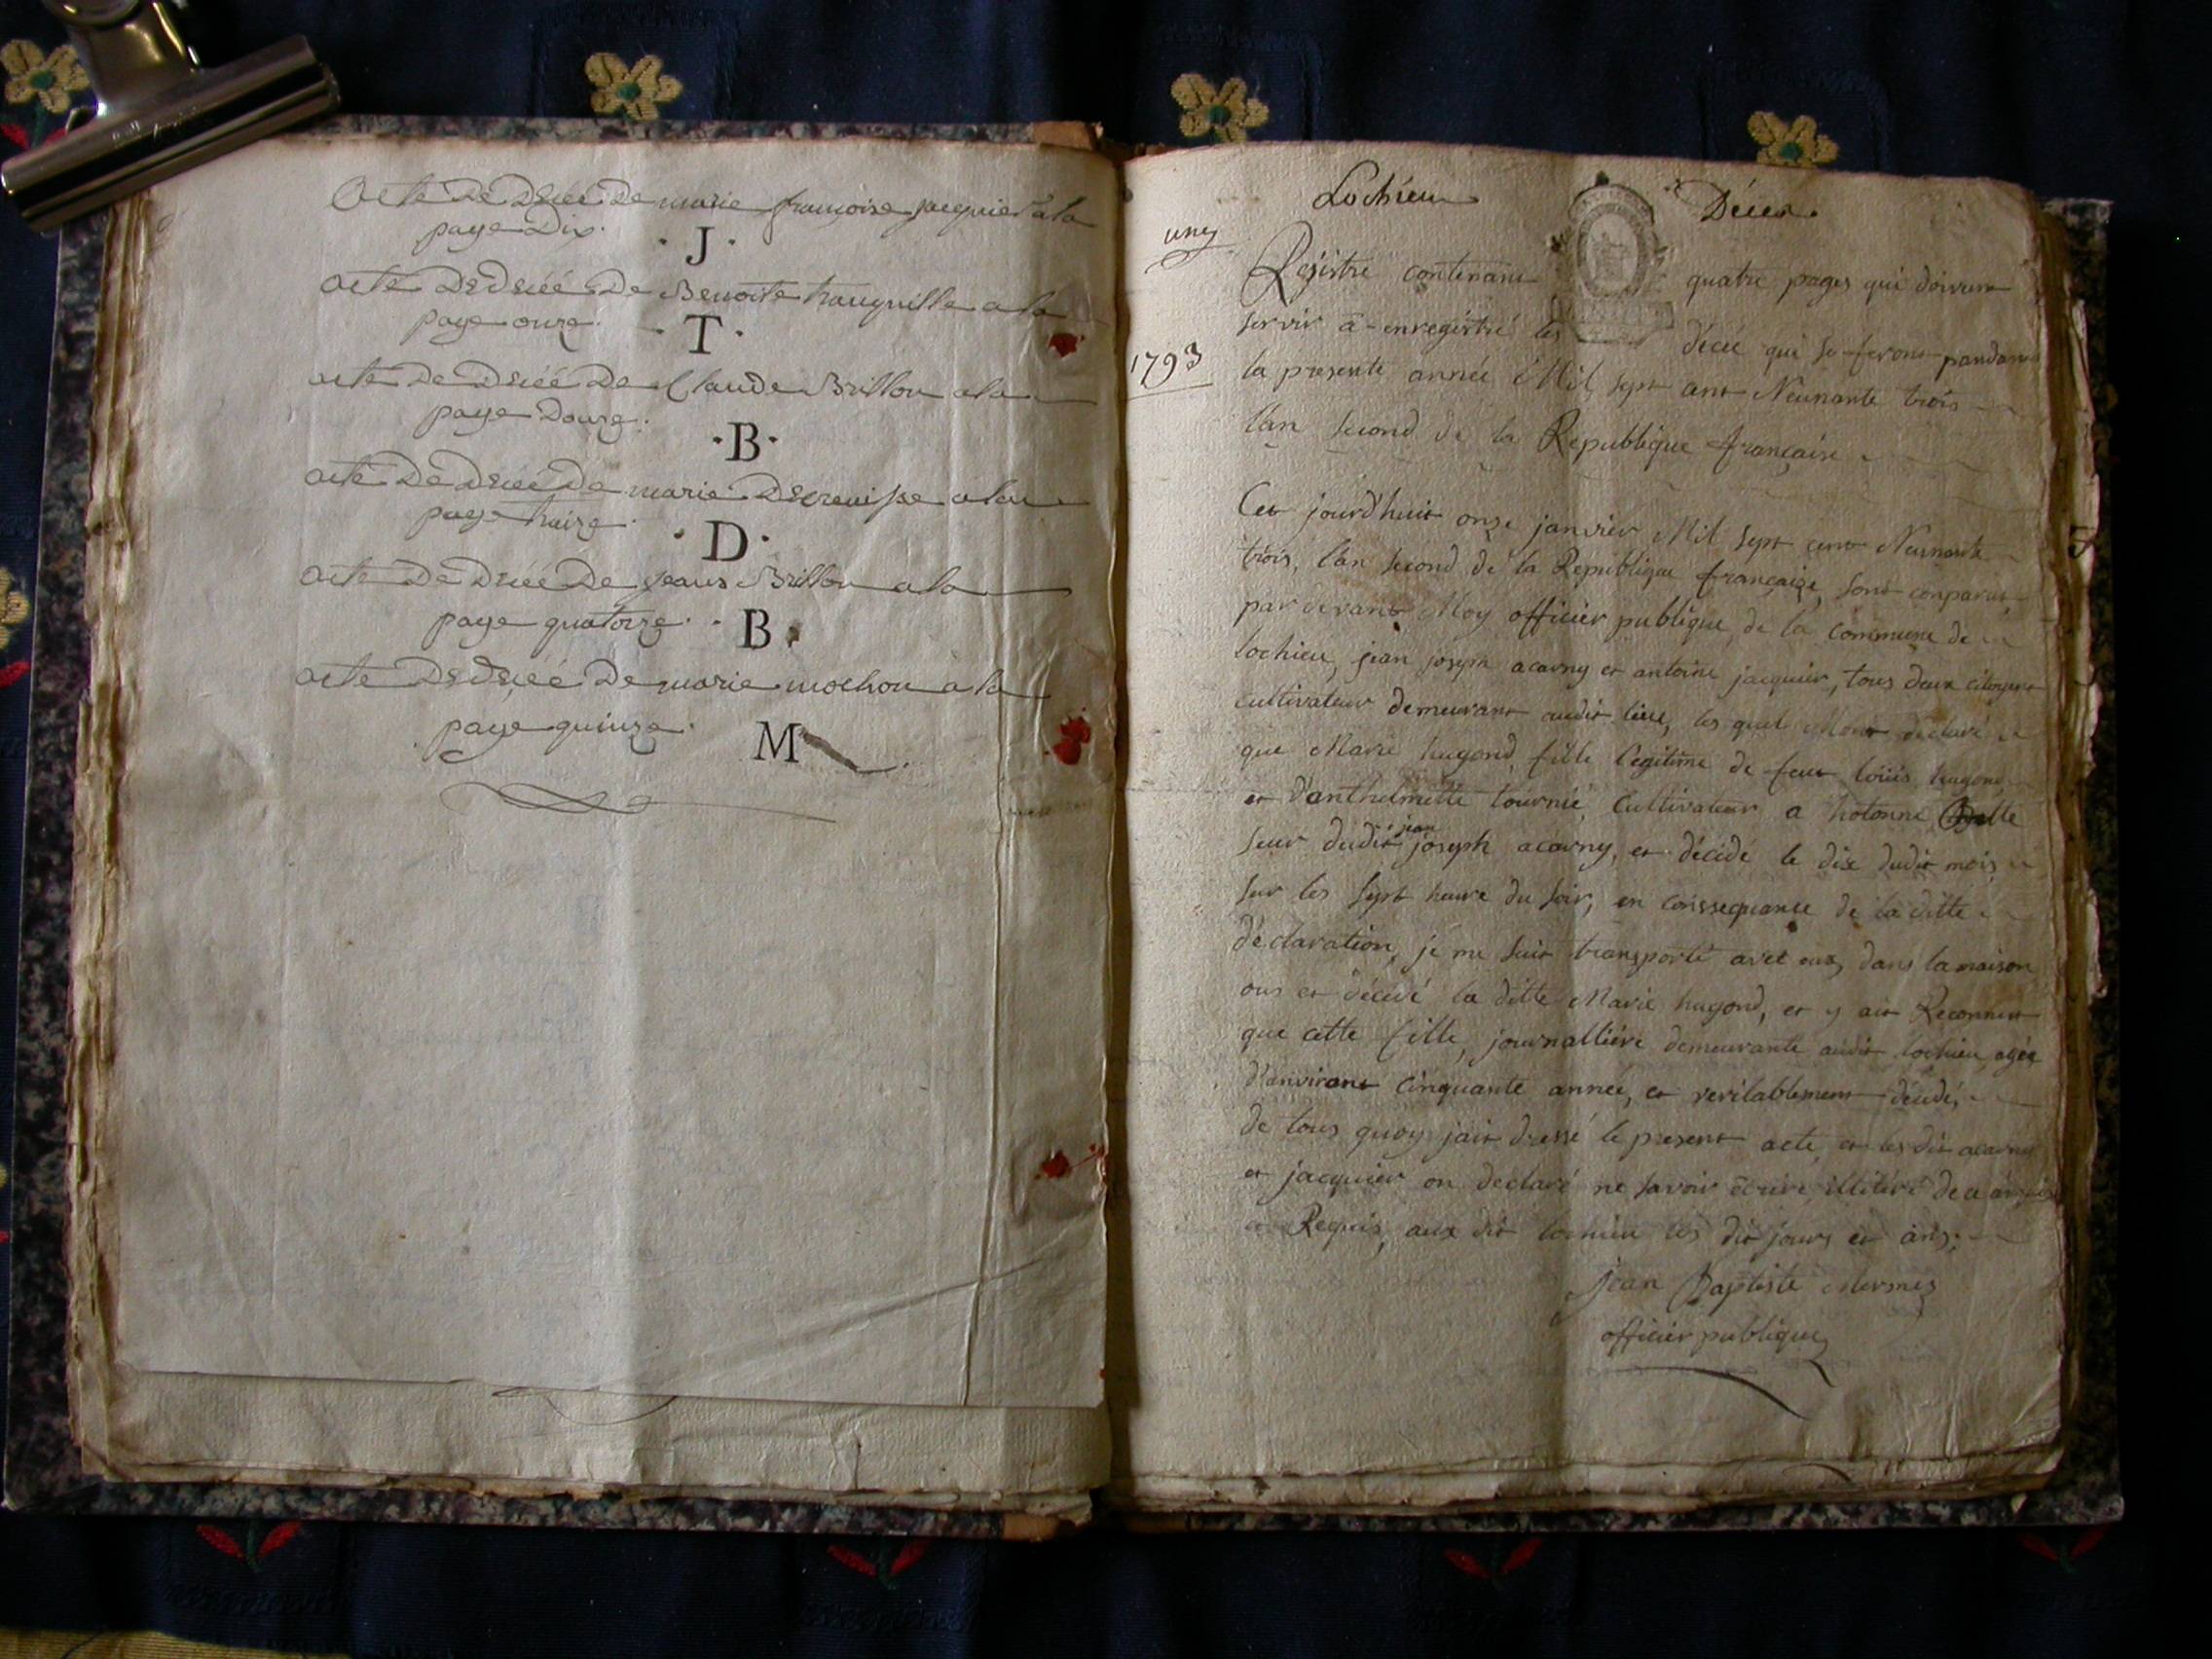 acte De Décéé De marie françoise jacquier a la
page Dix.
· J ·
acte De Décéé De Benoite tranquille a la
page onze.
· T ·
acte De Décéé De Claude Brillon a la
page Douze.
· B ·
acte De Décéé De marie Decrenisse a la
page treize.
· D ·
acte De Décéé De jeans Brillon a la
page quatorze.
· B ·
acte De Décéé De marie mochon a la
page quinze.
M
Lochieu Décea.
une
Registre contenant quatre pages qui doivent
servir a enregistré les décée qui se feront pandant
1793
la presente année Mil sept cent Neunante trois
l'an second de la Republique française
Cet jourd'huit onze janvier Mil sept cent Neunante
trois, l'an second de la Republique françaize, sont conparut,
par devant Moy officier publique de la commune de
lochieu, jean joseph acarny et antoine jacquier, tous deux citoyent
cultivateur demeurant audit lieu, les quel Mont declaré
que Marie hugond, fille legitime de feut loüis hugond
et d'anthelmette tournié, cultivateur a hotonne, Belle
seur dudit jean joseph acarny, et décédé le dix dudit mois
sur les sept heure du soir, en conssequance de la ditte
déclaration, je me suit transporté avec eux, dans la maison
ous et décédé la ditte Marie hugond, et y ait Reconnut
que cette fille, journalliére demeurante audit lochieu, agée
d'anviront cinquante année, et veritablement décédé,
de tous quoy jait dressé le present acte, et les dit acarny
et jacquier on declaré ne savoir écrire illitéré de ce
Requis, aux dit lochieu les dit jours et ans;
jean Baptiste Mermes
officier publique